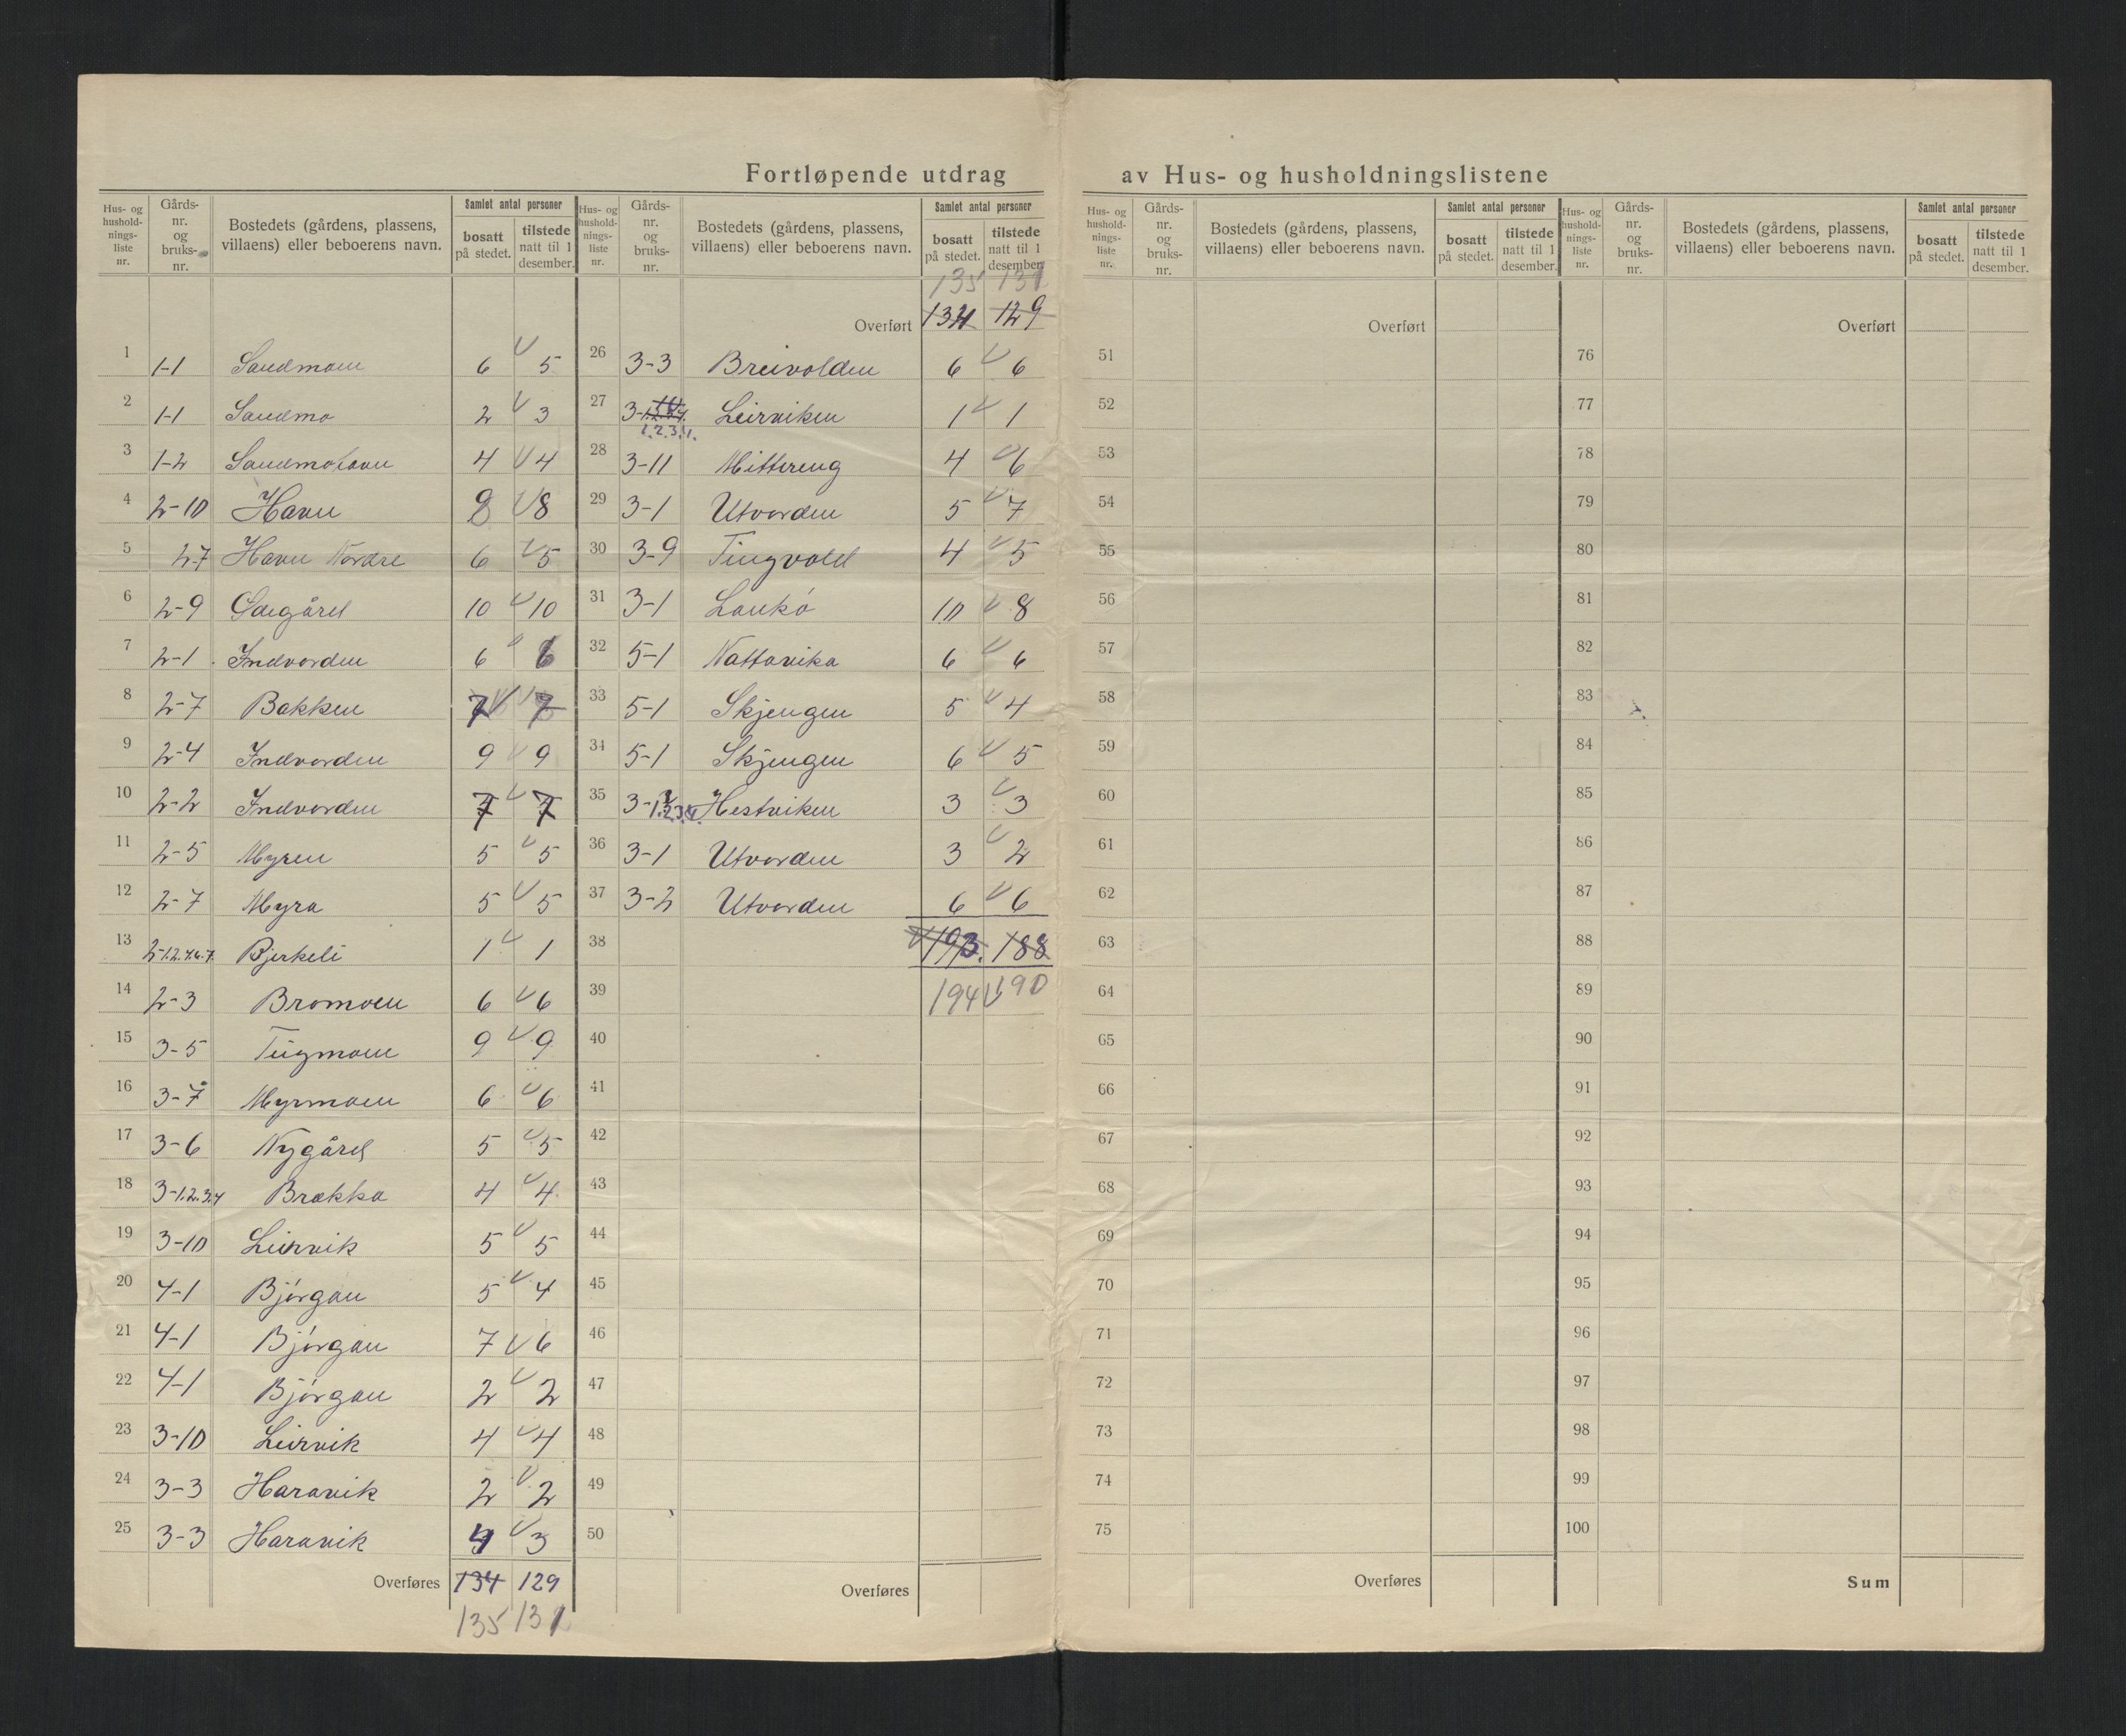 Fortløpende utdrag av Hus- og husholdningslistene
Hus- og hushold-nings-liste nr. Gårds-nr. og bruks-nr. Bostedets (gårdens, plassens, villaens) eller beboerens navn. Samlet antal personer bosatt på stedet. tilstede natt til 1 desember.
1 1-1 Sandmoen 6 5
2 1-1 Sandmo 2 3
3 1-2 Sandmohavn 4 4
4 2-10 Havn 8 8
5 2-7 Havn Nordre 6 5
6 2-9 Ødegård 10 10
7 2-1 Indvorden 6 6
8 2-7 Bakken 7 7
9 2-4 Indvorden 9 9
10 2-2 Indvorden 7 7
11 2-5 Myren 5 5
12 2-7 Myra 5 5
13 2-1.2.4.6-7. Bjerkeli 1 1
14 2-3 Bromoen 6 6
15 3-5 Tingmoen 9 9
16 3-7 Myrmoen 6 6
17 3-6 Nygård 5 5
18 3-1.2.3.4 Brækka 4 4
19 3-10 Leirvik 5 5
20 4-1 Bjørgan 5 4
21 4-1 Bjørgan 7 6
22 4-1 Bjørgan 2 2
23 3-10 Leirvik 4 4
24 3-3 Haravik 2 2
25 3-3 Haravik 4 3
Overføres 134 129
135 131
Hus- og hushold-nings-liste nr. Gårds-nr. og bruks-nr. Bostedets (gårdens, plassens, villaens) eller beboerens navn. Samlet antal personer bosatt på stedet. tilstede natt til 1 desember.
135 131
Overført 134 129
26 3-3 Breivolden 6 6
27 3-1.2.3.4. Leirviken 1 1
28 3-11 Mittereng 4 6
29 3-1 Utvorden 5 7
30 3-9 Tingvold 4 5
31 3-1 Laukø 10 8
32 5-1 Nattavika 6 6
33 5-1 Skjengen 5 4
34 5-1 Skjengen 6 5
35 3-1.2.3.4. Hestviken 3 3
36 3-1 Utvorden 3 2
37 3-2 Utvorden 6 6
38 193. 188
39 194 190
40
41
42
43
44
45
46
47
48
49
50
Overføres
Hus- og hushold-nings-liste nr. Gårds-nr. og bruks-nr. Bostedets (gårdens, plassens, villaens) eller beboerens navn. Samlet antal personer bosatt på stedet. tilstede natt til 1 desember.
Overført
51
52
53
54
55
56
57
58
59
60
61
62
63
64
65
66
67
68
69
70
71
72
73
74
75
Overføres
Hus- og hushold-nings-liste nr. Gårds-nr. og bruks-nr. Bostedets (gårdens, plassens, villaens) eller beboerens navn. Samlet antal personer bosatt på stedet. tilstede natt til 1 desember.
Overført
76
77
78
79
80
81
82
83
84
85
86
87
88
89
90
91
92
93
94
95
96
97
98
99
100
Sum